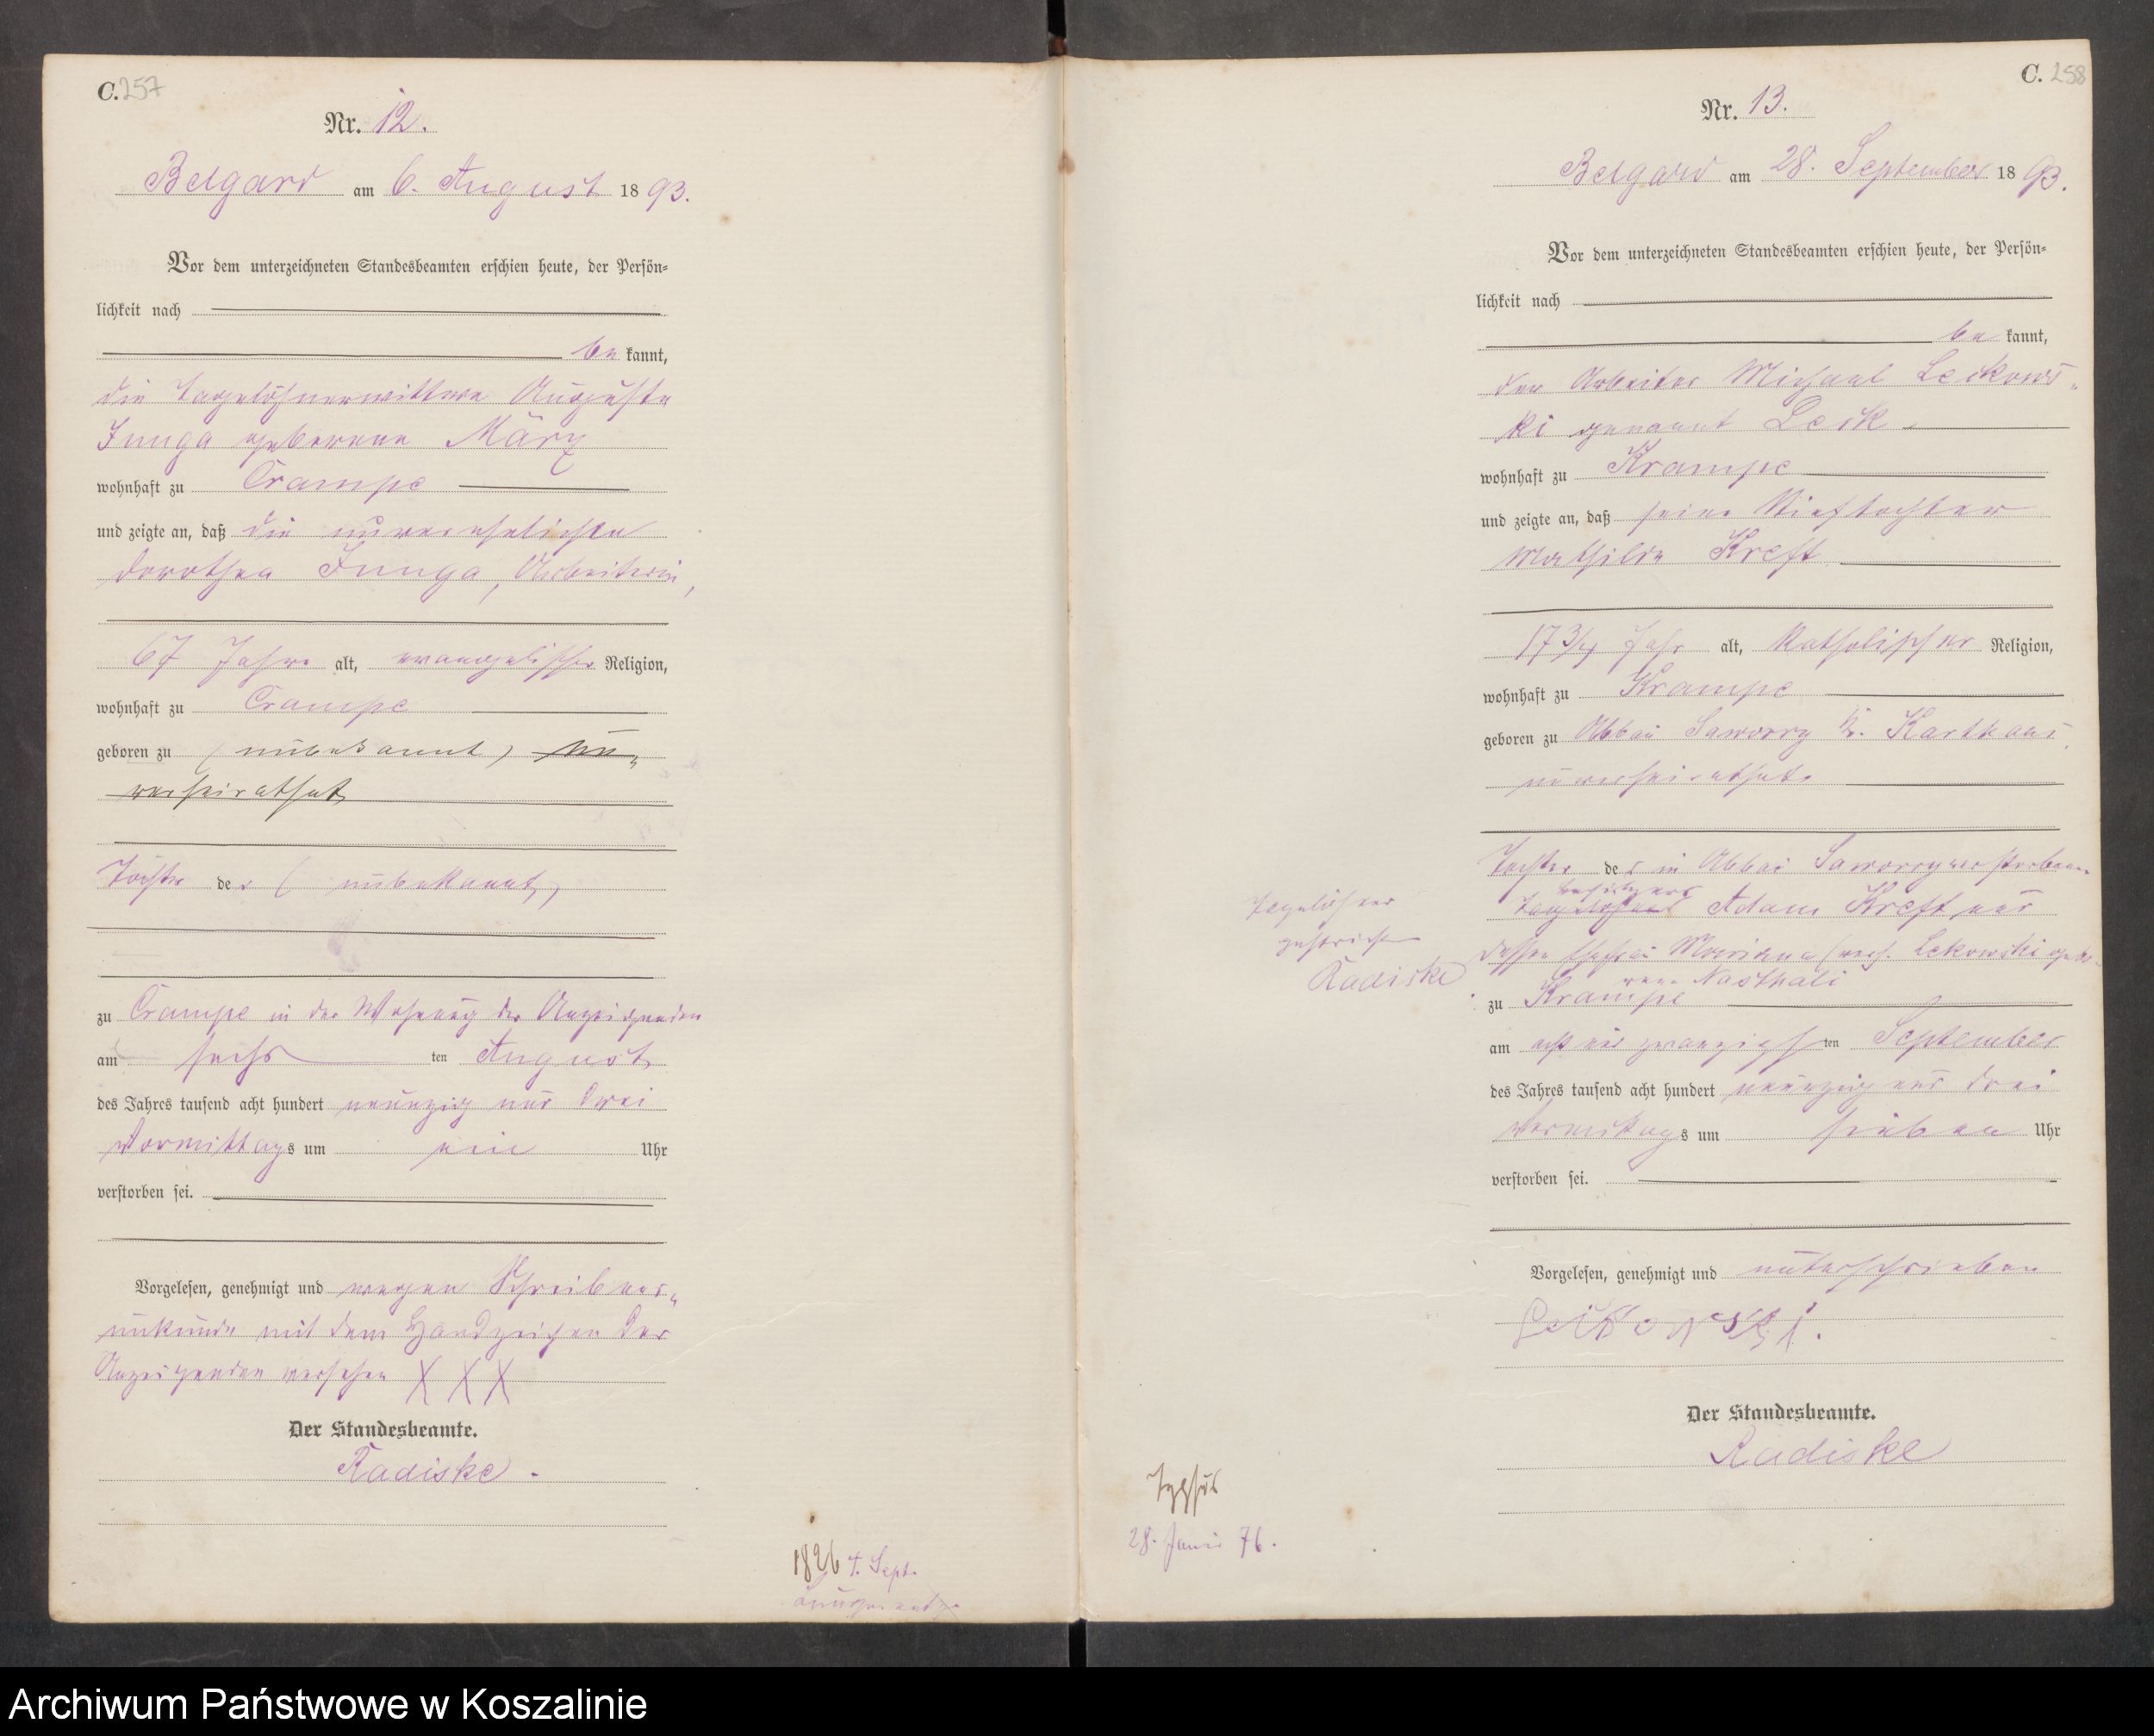 C. 257
Nr. 12.
Belgard am 6. August 1893.
Vor dem unterzeichneten Standesbeamten erschien heute, der Persön-
lichkeit nach
be kannt,
die Tagelöhnerwittwe Auguste
Junga geborene März
wohnhaft zu Crampe
und zeigte an, daß die unverehelichte
Dorothea Junga, Arbeiterin,
67 Jahre alt, evangelischer Religion,
wohnhaft zu Crampe
geboren zu (unbekannt) un-
verheirathet
Tochter der (unbekannt)
zu Crampe in der Wohnung der Anzeigenden
am sechs ten August
des Jahres tausend acht hundert neunzig und drei
Vormittags um Uhr
verstorben sei.
Vorgelesen, genehmigt und wegen Schreibens-
unkunde mit dem Handzeichen der
Anzeigenden versehen XXX
Der Standesbeamte.
Radiske.
1826 4. Sept.
C. 258
Nr. 13.
Belgard am 28. September 1893.
Vor dem unterzeichneten Standesbeamten erschien heute, der Persön-
lichkeit nach
be kannt,
der Arbeiter Michael Leikows-
ki genannt Leik
wohnhaft zu Krampe
und zeigte an, daß seine Stieftochter
Mathilde Kreft
17 3/4 Jahr alt, katholischer Religion,
wohnhaft zu Krampe
geboren zu Abbau Saworry Kr. Karthaus,
unverheirathet
Tochter des in Abbau Saworry verstorbenen
Besitzers
Tagelöhner Adam Kreft und
dessen Ehefrau Marianna (verh. Lekowski gebo-
rene Nasthali
zu Krampe
am acht und zwanzigsten September
des Jahres tausend acht hundert neunzig und drei
Vormittags um sieben Uhr
verstorben sei.
Tagelöhner
gestrichen
Radiske
Vorgelesen, genehmigt und unterschrieben
Leikowski.
Der Standesbeamte.
Radiske
Typhus
28. 76.
Archiwum Państwowe w Koszalinie